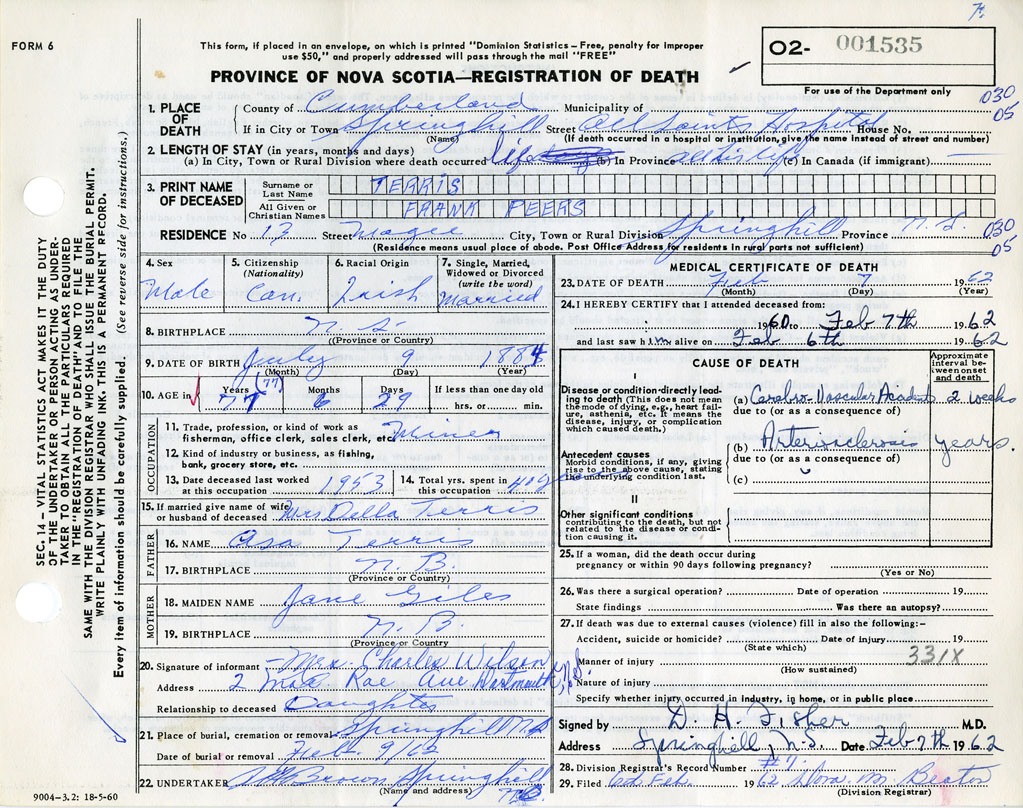 7.
FORM 6
This form, if placed in an envelope, on which is printed "Dominion Statistics – Free, penalty for improper
use $50," and properly addressed will pass through the mail "FREE"
PROVINCE OF NOVA SCOTIA—REGISTRATION OF DEATH
O2- 001535
For use of the Department only
030
05
1. PLACE OF DEATH
County of Cumberland Municipality of
If in City or Town Springhill Street All Saints Hospital House No.
(Name) (If death occurred in a hospital or institution, give the name instead of street and number)
2. LENGTH OF STAY (in years, months and days)
(a) In City, Town or Rural Division where death occurred life (b) In Province all his life (c) In Canada (if immigrant) —
3. PRINT NAME OF DECEASED
Surname or Last Name TERRIS
All Given or Christian Names FRANK PEERS
RESIDENCE No 13 Street Magee City, Town or Rural Division Springhill Province N.S.
030
05
(Residence means usual place of abode. Post Office Address for residents in rural parts not sufficient)
4. Sex
Male
5. Citizenship
(Nationality)
Can.
6. Racial Origin
Irish
7. Single, Married, Widowed or Divorced
(write the word)
Married
8. BIRTHPLACE N.S.
(Province or Country)
9. DATE OF BIRTH July 9 1884
(Month) (Day) (Year)
10. AGE in
Years (77) Months Days If less than one day old
77 6 29 hrs. or min.
OCCUPATION
11. Trade, profession, or kind of work as
fisherman, office clerk, sales clerk, etc. Miner
12. Kind of industry or business, as fishing,
bank, grocery store, etc.
13. Date deceased last worked
at this occupation 1953
14. Total yrs. spent in
this occupation 40 years
15. If married give name of wife
or husband of deceased Mrs Della Terris
FATHER
16. NAME Asa Terris
17. BIRTHPLACE N.B.
(Province or Country)
MOTHER
18. MAIDEN NAME Jane Giles
19. BIRTHPLACE N.B.
(Province or Country)
20. Signature of informant – Mrs. Charles Wilson
Address 2 Rae Ave Dartmouth, N.S.
Relationship to deceased Daughter
21. Place of burial, cremation or removal Springhill N.S
Date of burial or removal Feb. 9/62
22. UNDERTAKER Brown Springhill
(Name and address) N.S.
9004-3.2: 18-5-60
MEDICAL CERTIFICATE OF DEATH
23. DATE OF DEATH Feb 7 1962
(Month) (Day) (Year)
24. I HEREBY CERTIFY that I attended deceased from:
1960 to Feb 7th 1962
and last saw him alive on Feb 6th 1962
CAUSE OF DEATH
Approximate interval between onset and death
I
Disease or condition directly leading to death (This does not mean the mode of dying, e.g., heart failure, asthenia, etc. It means the disease, injury, or complication which caused death.)
(a) Cerebro-Vascular Accident 2 weeks
due to (or as a consequence of)
Antecedent causes
Morbid conditions, if any, giving rise to the above cause, stating the underlying condition last.
(b) Arteriosclerosis years.
due to (or as a consequence of)
(c)
II
Other significant conditions
contributing to the death, but not related to the disease or condition causing it.
25. If a woman, did the death occur during
pregnancy or within 90 days following pregnancy?
(Yes or No)
26. Was there a surgical operation? Date of operation 19
State findings Was there an autopsy?
27. If death was due to external causes (violence) fill in also the following:–
Accident, suicide or homicide? Date of injury 19
(State which)
Manner of injury 331X
(How sustained)
Nature of injury
Specify whether injury occurred in industry, in home, or in public place
Signed by D. H. Fisher M.D.
Address Springhill, N.S. Date Feb 7th 1962
28. Division Registrar's Record Number #7.
29. Filed Feb. 1962 M. Beaton
(Division Registrar)
SEC. 14—VITAL STATISTICS ACT MAKES IT THE DUTY
OF THE UNDERTAKER OR PERSON ACTING AS UNDERTAKER
TO OBTAIN ALL THE PARTICULARS REQUIRED
IN THE "REGISTRATION OF DEATH" AND TO FILE THE
SAME WITH THE DIVISION REGISTRAR WHO SHALL ISSUE THE BURIAL PERMIT.
WRITE PLAINLY WITH UNFADING INK. THIS IS A PERMANENT RECORD.
Every item of information should be carefully supplied. (See reverse side for instructions.)